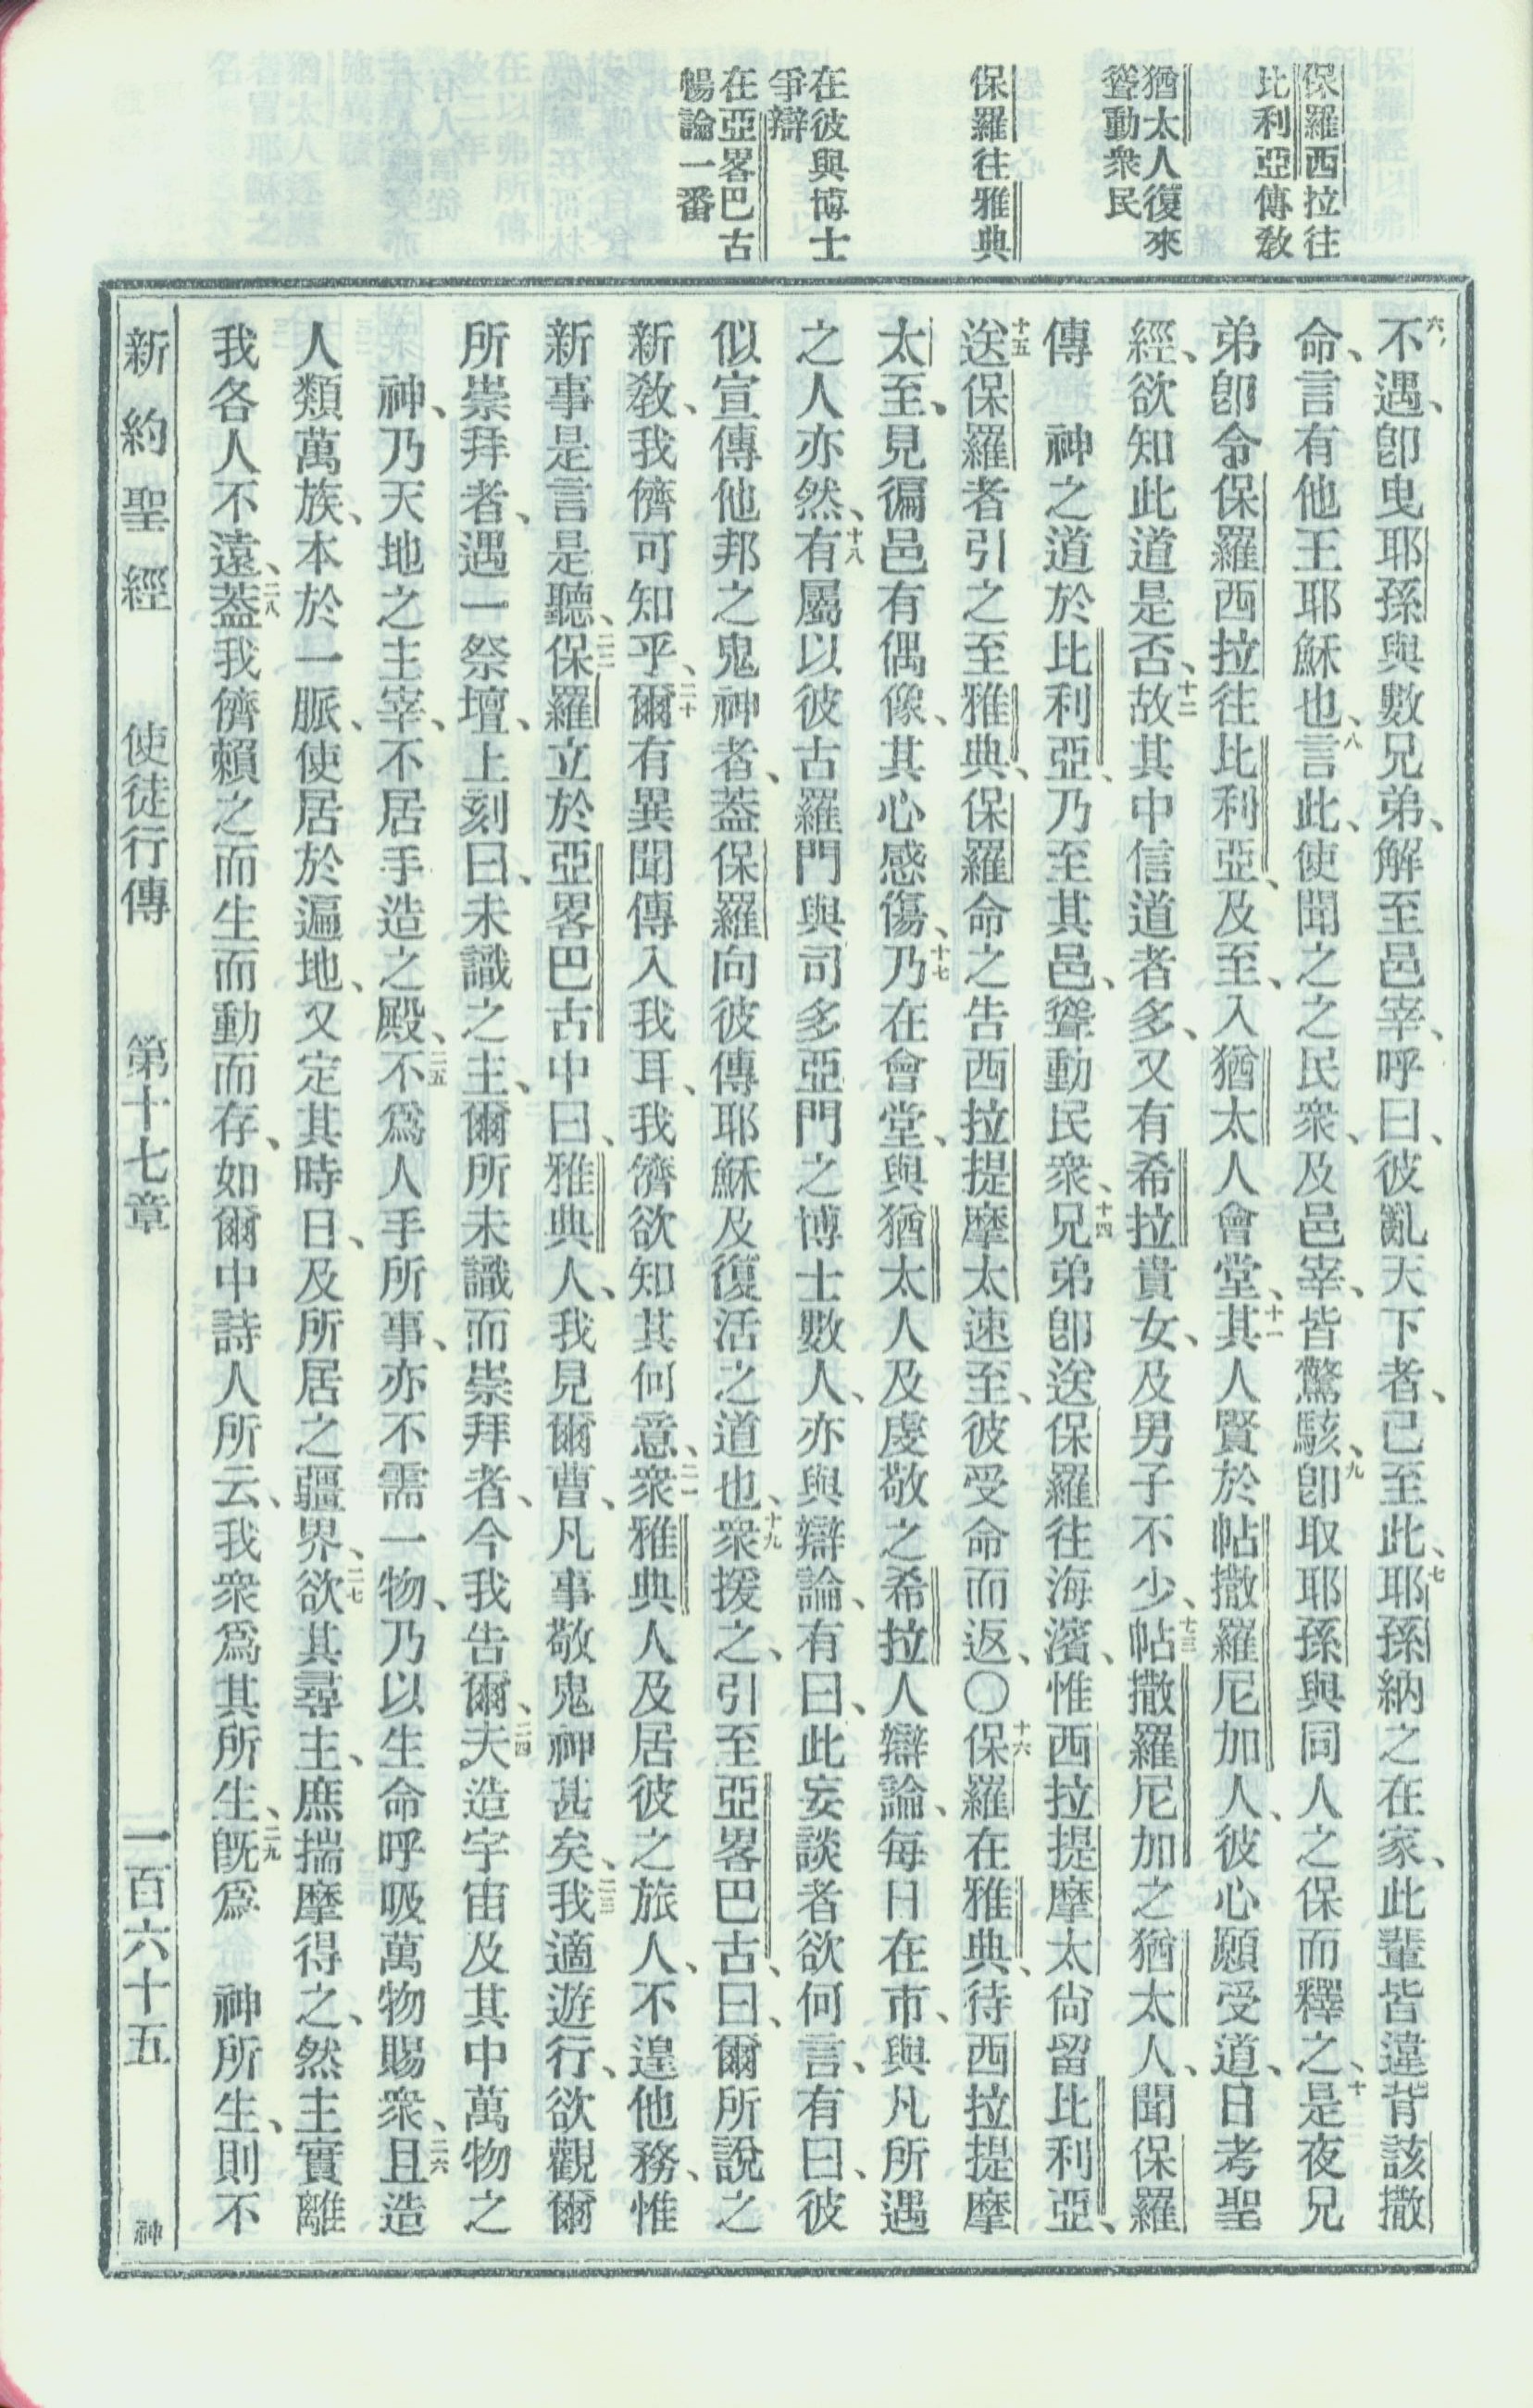 保羅西拉往
比利亞傳敎
猶太人復來
聳動衆民
保羅往雅典
在彼與博士
爭辯
在亞畧巴古
暢論一番
六不遇、卽曳耶孫與數兄弟、解至邑宰、呼曰、彼亂天下者、已至此、七耶孫納之在家、此輩皆違背該撒
命、言有他王耶穌也、八言此、使聞之之民衆、及邑宰、皆驚駭、九卽取耶孫與同人之保而釋之、十是夜兄
弟卽令保羅西拉往比利亞、及至、入猶太人會堂、十一其人賢於帖撒羅尼加人、彼心願受道、日考聖
經、欲知此道是否、十二故其中信道者多、又有希拉貴女、及男子不少、十三帖撒羅尼加之猶太人、聞保羅
傳　神之道於比利亞、乃至其邑、聳動民衆、十四兄弟卽送保羅往海濱、惟西拉提摩太尙留比利亞、
十五送保羅者引之至雅典、保羅命之告西拉提摩太速至、彼受命而返、〇十六保羅在雅典、待西拉提摩
太至、見徧邑有偶像、其心感傷、十七乃在會堂、與猶太人及虔敬之希拉人辯論、每日在市、與凡所遇
之人亦然、十八有屬以彼古羅門與司多亞門之博士數人、亦與辯論、有曰、此妄談者欲何言、有曰、彼
似宣傳他邦之鬼神者、蓋保羅向彼傳耶穌及復活之道也、十九衆援之、引至亞畧巴古、曰、爾所說之
新敎、我儕可知乎、二十爾有異聞傳入我耳、我儕欲知其何意、二一衆雅典人及居彼之旅人、不遑他務、惟
新事是言是聽、二二保羅立於亞畧巴古中曰、雅典人、我見爾曹、凡事敬鬼神甚矣、二三我適遊行、欲觀爾
所崇拜者、遇一祭壇、上刻曰、未識之主、爾所未識而崇拜者、今我告爾、二四夫造宇宙及其中萬物之
　神、乃天地之主宰、不居手造之殿、二五不爲人手所事、亦不需一物、乃以生命呼吸萬物賜衆、二六且造
人類萬族、本於一脈、使居於遍地、又定其時日、及所居之疆界、二七欲其尋主、庶揣摩得之、然主實離
我各人不遠、二八蓋我儕賴之而生而動而存、如爾中詩人所云、我衆爲其所生、二九旣爲　神所生、則不
新約聖經　使徒行傳　第十七章　一百六十五　神